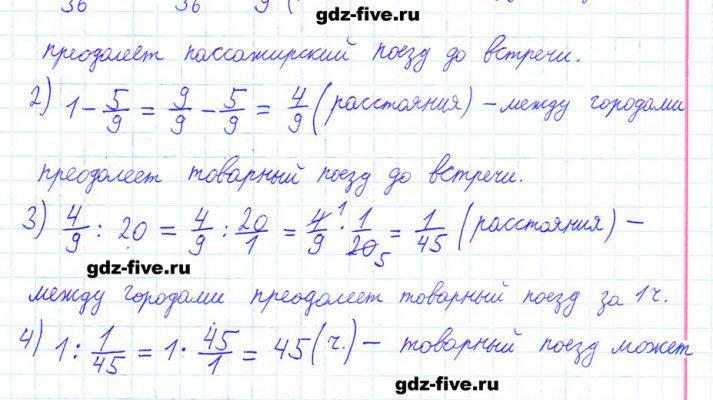 36 36 9 (
gdz-five.ru
преодолеет пассажирский поезд до встречи.
2) 1 - 5/9 = 9/9 - 5/9 = 4/9 (расстояния) - между городами
преодолеет товарный поезд до встречи.
3) 4/9 : 20 = 4/9 : 20/1 = 4/9 1 · 1/20 5 = 1/45 (расстояния) -
gdz-five.ru
между городами преодолеет товарный поезд за 1 ч.
4) 1 : 1/45 = 1 : 45/1 = 45 (ч.) - товарный поезд может
gdz-five.ru